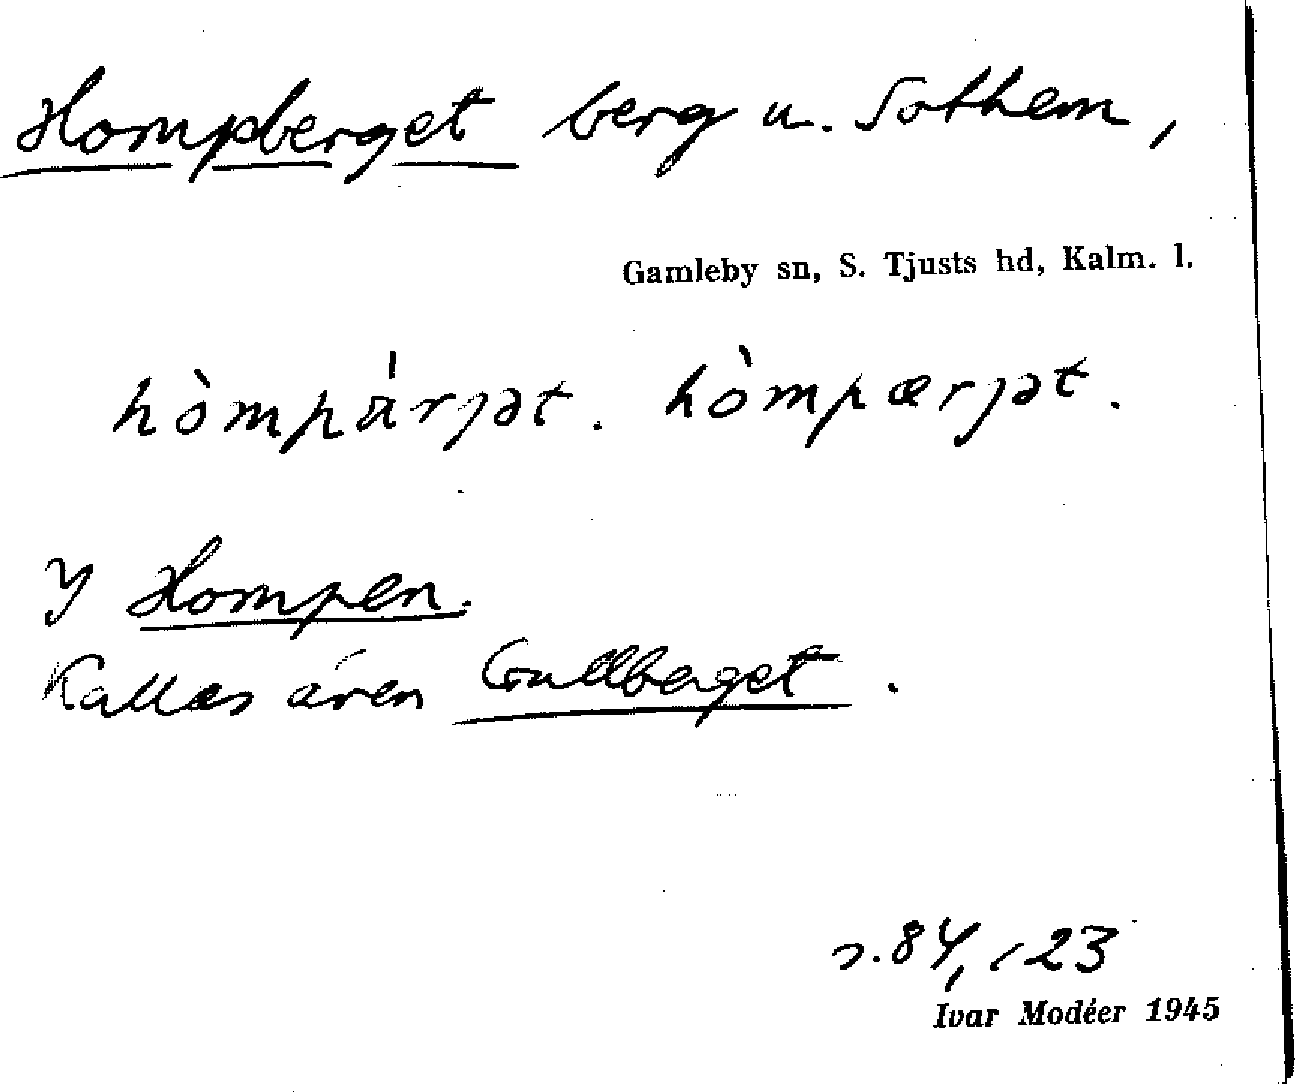 Hompberget berg u. Sothem,
Gamleby sn, S. Tjusts hd, Kalm. l.
hòmpárjət. hòmpærjət.
Y Hompen.
Kallas även Gullberget.
s. 84, 123
Ivar Modéer 1945